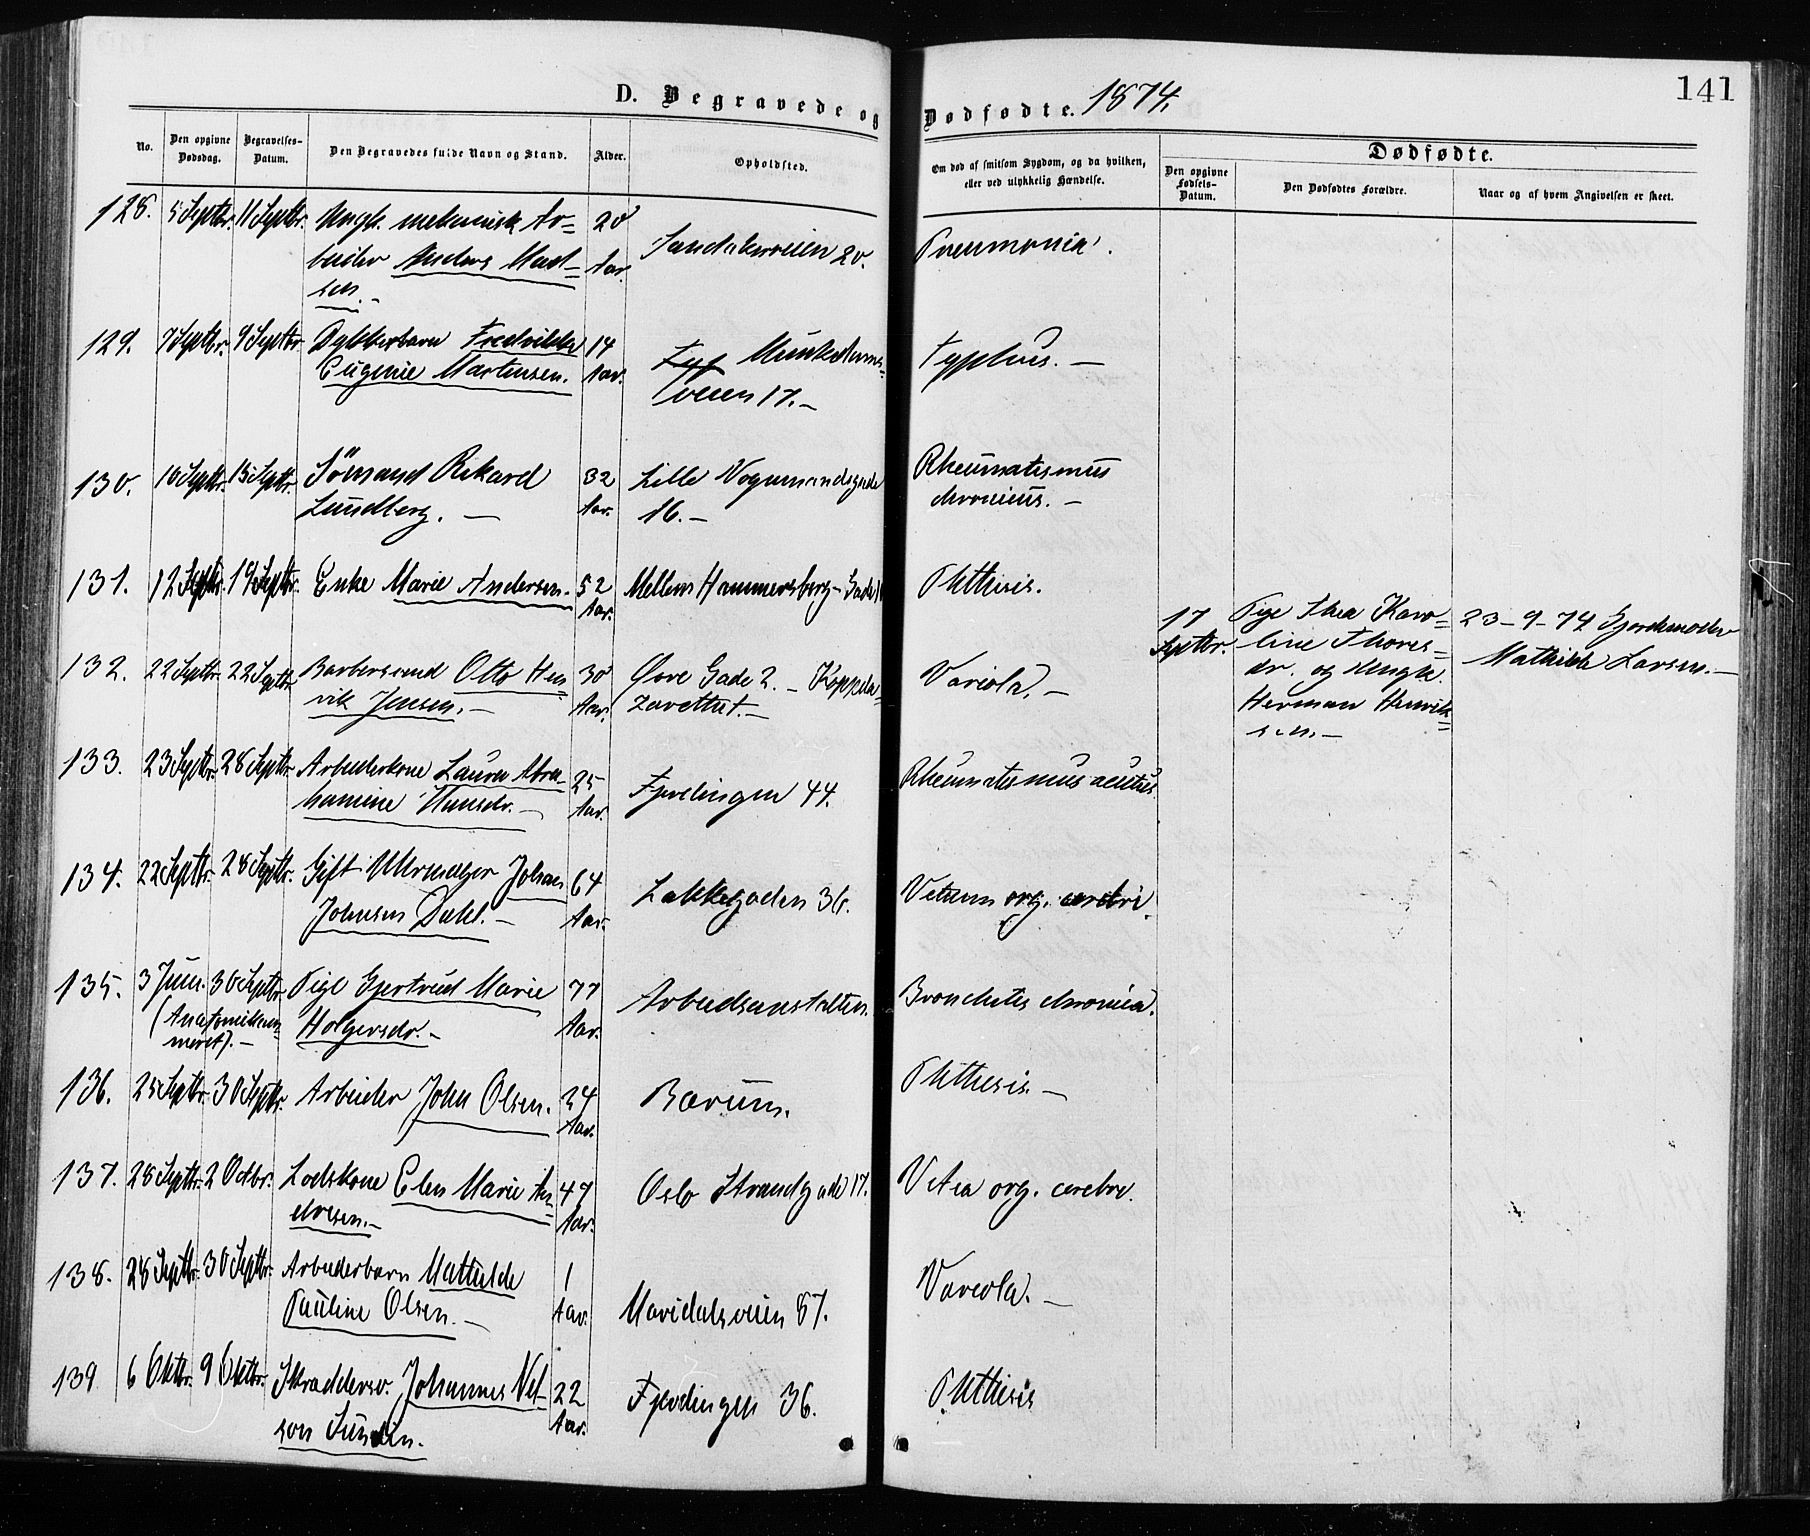 141
D. Begravede og Dødfødte. 1874.
No.
Den opgivne Dødsdag.
Begravelses-Datum.
Den Begravedes fulde Navn og Stand.
Alder.
Opholdsted.
Om død af smitsom Sygdom, og da hvilken, eller ved ulykkelig Hændelse.
Dødfødte.
Den opgivne Fødsels-Datum.
Den Dødfødtes Forældre.
Naar og af hvem Angivelsen er skeet.
128. 5 Septbr. 11 Septbr. Ungk. mekanisk Ar= 28 Sandakerveien 20. Pneumonia.
beider Anders Mad= Aar.
sen.
129. 7 Septbr. 9 Septbr. Dykkerbarn Fredrikke 14 Munkedams= Typhus. —
Eugenie Martensen. Aar. veien 17. —
130. 10 Septbr. 15 Septbr. Sömand Rikard 32 Lille Vognmandsgade Rheumatismus
Lundberg. — Aar. 16. — chronicus. —
131. 12 Septbr. 19 Septbr. Enke Marie Andersen. 52 Mellem Hammersborg-Gade Phthisis.
Aar.
17 Pige Thea Karo= 23-9-74 Gjordemoder
Septbr. line Thores= Mathilde Larsen. —
dr. og Ungk.
Herman Henrik=
sen. —
132. 22 Septbr. 22 Septbr. Barbersvend Otto Hen 30 Øvre Gade 2. — Koppela= Variola. —
rik Jensen. — Aar. zarettet. —
133. 23 Septbr. 28 Septbr. Arbeiderkone Laura Abra= 25 Fjerdingen 44. Rheumatismus acutus.
hamine Hansdr. — Aar.
134. 22 Septbr. 28 Septbr. Gift Uhrmager Johan 64 Lakkegaden 36. Vitium org. cerebri.
Johnsen Dahl. — Aar.
135. 3 Juni. 30 Septbr. Pige Gjertrud Marie 77 Arbeidsanstalten. Bronchitis chronica.
(Anatomikam= Holgersdr. — Aar.
meret). —
136. 25 Septbr. 30 Septbr. Arbeider John Olsen. 34 Bærum. Phthisis. —
Aar.
137. 28 Septbr. 2 Octbr. Lodskone Elen Marie An= 47 Oslo Strandgade 17. Vitia org. cerebri.
dresen. — Aar.
138. 28 Septbr. 30 Septbr. Arbeiderbarn Mathilde 1 Maridalsveien 87. Variola. —
Pauline Olsen. — Aar.
139 6 Oktbr. 9 Oktbr. Skræddersv. Johannes Nel= 22 Fjerdingen 36. Phthisis
son Sundin. Aar.